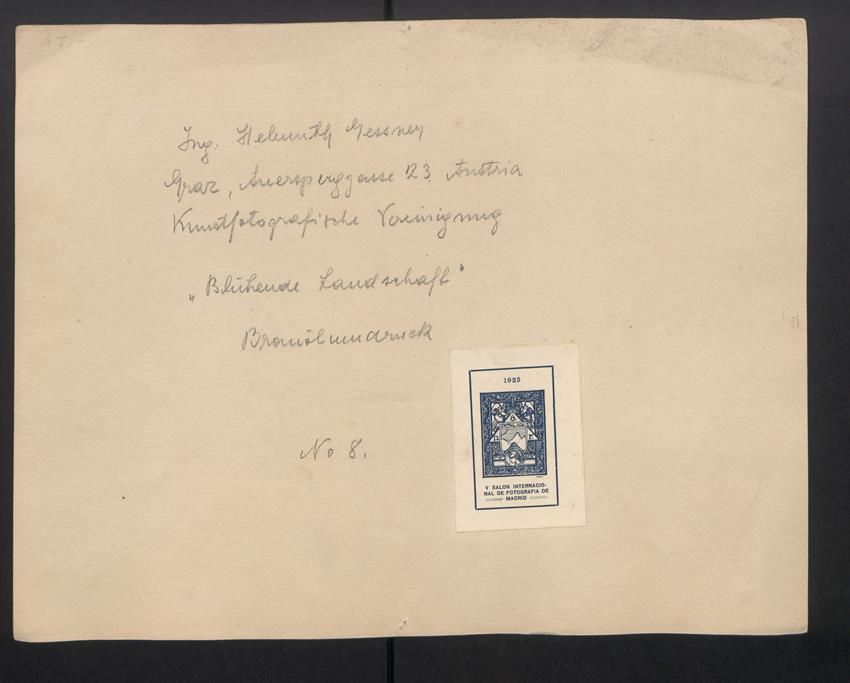 Ing. Helmuth Gessner
Graz, Auersperggasse 23 Austria
Kunstfotografische Vereinigung
„Blühende Landschaft"
Bromölumdruck
No 8.
1925
V SALON INTERNACIO-
NAL DE FOTOGRAFIA DE
MADRID